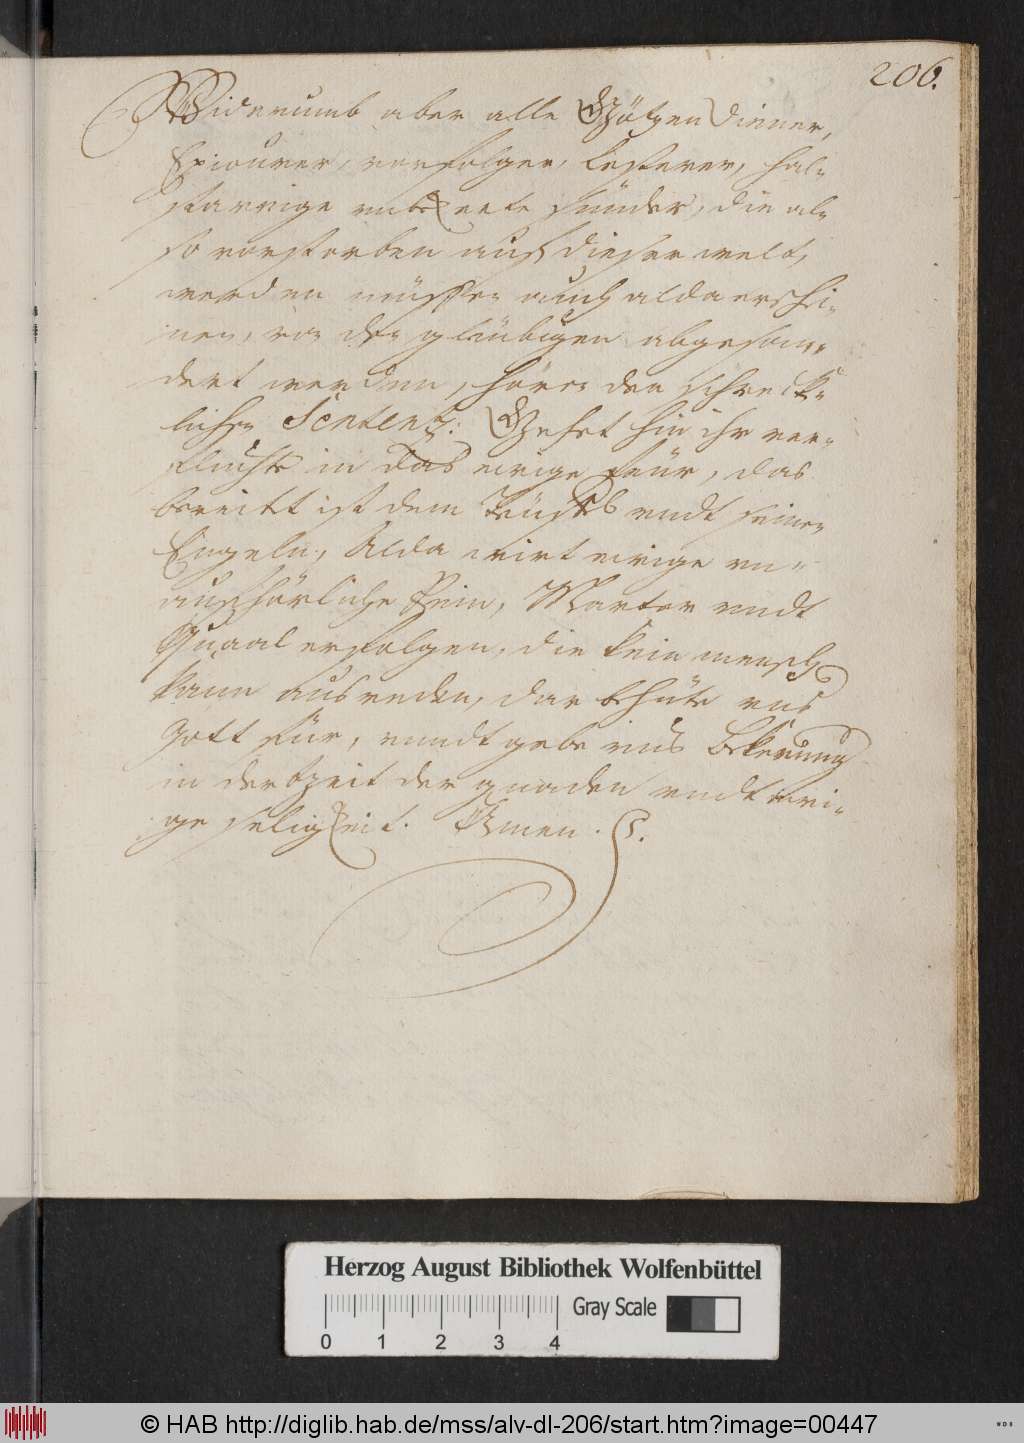 206.
Widerumb aber alle Götzen diener,
Epicurer, verfolger, Lesterer, hal-
starrige unbekerte sünder, die al-
so verstorben auß dieser welt,
werden müssen auch alda erschei-
nen, von den gläubigen abgeson-
dert werden, hören den schreck-
lichen Sentenz: Gehet hin ihr ver-
fluchte in das ewige feür, das
bereitt ist dem Teüffel undt seinen
Engeln, Alda wirt ewige un-
aufhörliche Pein, Marter undt
Quaal erfolgen, die kein mensch
kann ausreden, dar behüte uns
Gott für, unndt gebe uns Bekerung
in der Zeit der gnaden undt ewi-
ge seligkeit. Amen.
Herzog August Bibliothek Wolfenbüttel
0 1 2 3 4 Gray Scale
© HAB http://diglib.hab.de/mss/alv-dl-206/start.htm?image=00447